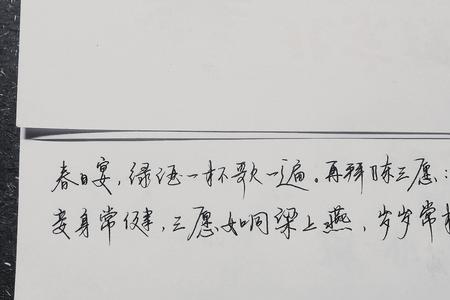 春日宴，绿酒一杯歌一遍。再拜陈三愿：
妾身常健，三愿如同梁上燕，岁岁常相